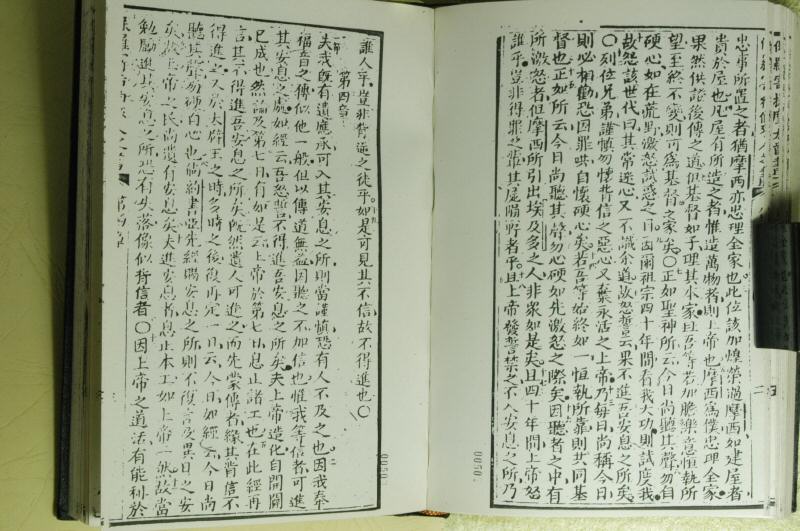 忠事所置之者猶摩西亦忠理全家也此位該加煌榮過摩西如建屋者
貴於屋也凡屋有所造之者惟造萬物者則上帝也摩西為僕忠理全家
果然供證後傳之道但基督如子理其本家且吾等若加膽樂意恒執所
望至終不變則可為基督之家矣〇正如聖神所云今日尚聽其聲勿自
硬心如在荒野激怒試惑之日因爾祖宗四十年間看我大功則試度我
故怨該世代曰其常迷心又不識余道故怒誓云果不進吾安息之所矣
〇列位兄弟謹慎勿懷背信之惡心又棄永活之上帝乃每日尚稱今日
則必相勸恐因罪哄自懷硬心矣若吾等始終如一恒執所靠則共同基
督也正如所云今日尚聽其聲勿心硬如先激怒之際矣因聽者之中有
所激怒者但摩西所引出埃及多之人非衆如是矣且四十年間上帝怒
誰乎豈非得罪之輩其屍隕野者乎且上帝發誓禁之不入安息之所乃
誰人乎豈非背逆之徒乎如是可見其不信故不得進也〇
第四章
夫我既有遺應承可入其安息之所則當謹慎恐有人不及之也因我奉
福音之傳似他一般但以傳道無益因聽之不加信也惟我等信者可進
其安息之處如經云吾怒誓不得進吾安息之所矣夫上帝造化自開闢
已成也然論及第七日有如是云上帝於第七日息止諸工也在此經再
言其不得進吾安息之所矣既然遺人可進之而先蒙傳者緣其背信不
得進之又於大辟王之時多時之後復再定一日云今日如經云今日尚
聽其聲勿硬自心也倘約書亞先經賜安息之所則不復言及異日之安
矣故上帝之民尚遺有安息矣夫進安息者息止本工如上帝一然故當
勉勵進此安息之所恐有失落像似背信者〇因上帝之道活有能利於
第四章
0050
0050